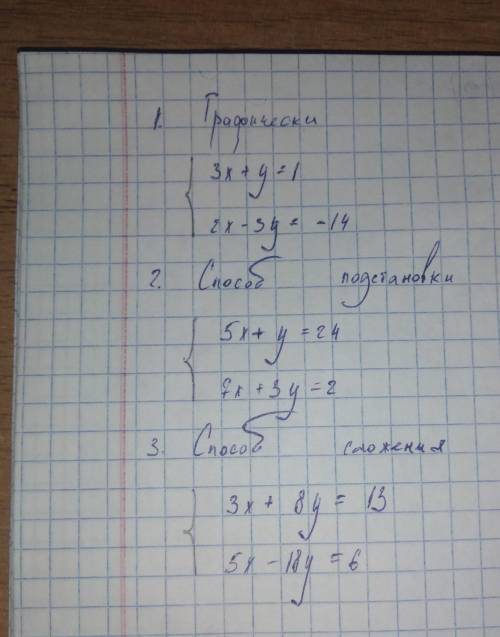 1. Графически
3x + y = 1
2x - 3y = -14
2. Способ подстановки
5x + y = 24
7x + 3y = 2
3. Способ сложения
3x + 8y = 13
5x - 18y = 6